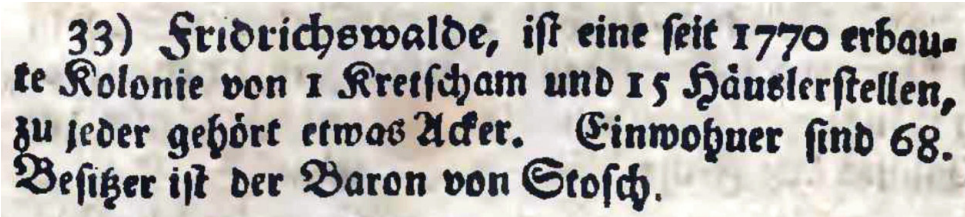 33) Fridrichswalde, ist eine seit 1770 erbau-
te Kolonie von 1 Kretscham und 15 Häuslerstellen,
zu jeder gehört etwas Acker. Einwohner sind 68.
Besitzer ist der Baron von Stosch.